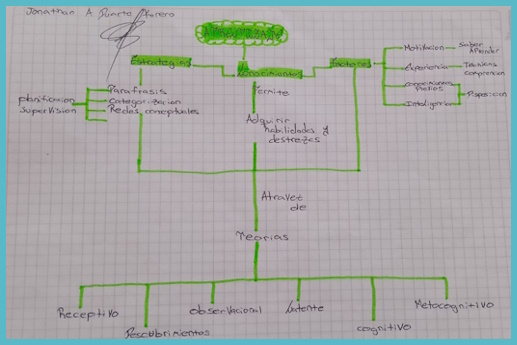 Jonathan A Duarte
Aprendizaje
Estrategias
Conocimientos
Factores
Motivacion
Saber
Aprender
Experiencia
Tecnicas
comprension
conocimientos
Previos
Inteligencia
Disposicion
planificacion
Supervision
Parafrasis
Categorizacion
Redes conceptuales
Permite
Adquirir
habilidades y
destrezas
Atravez
de
Teorias
Receptivo
Descubrimientos
observacional
Latente
cognitivo
Metacognitivo